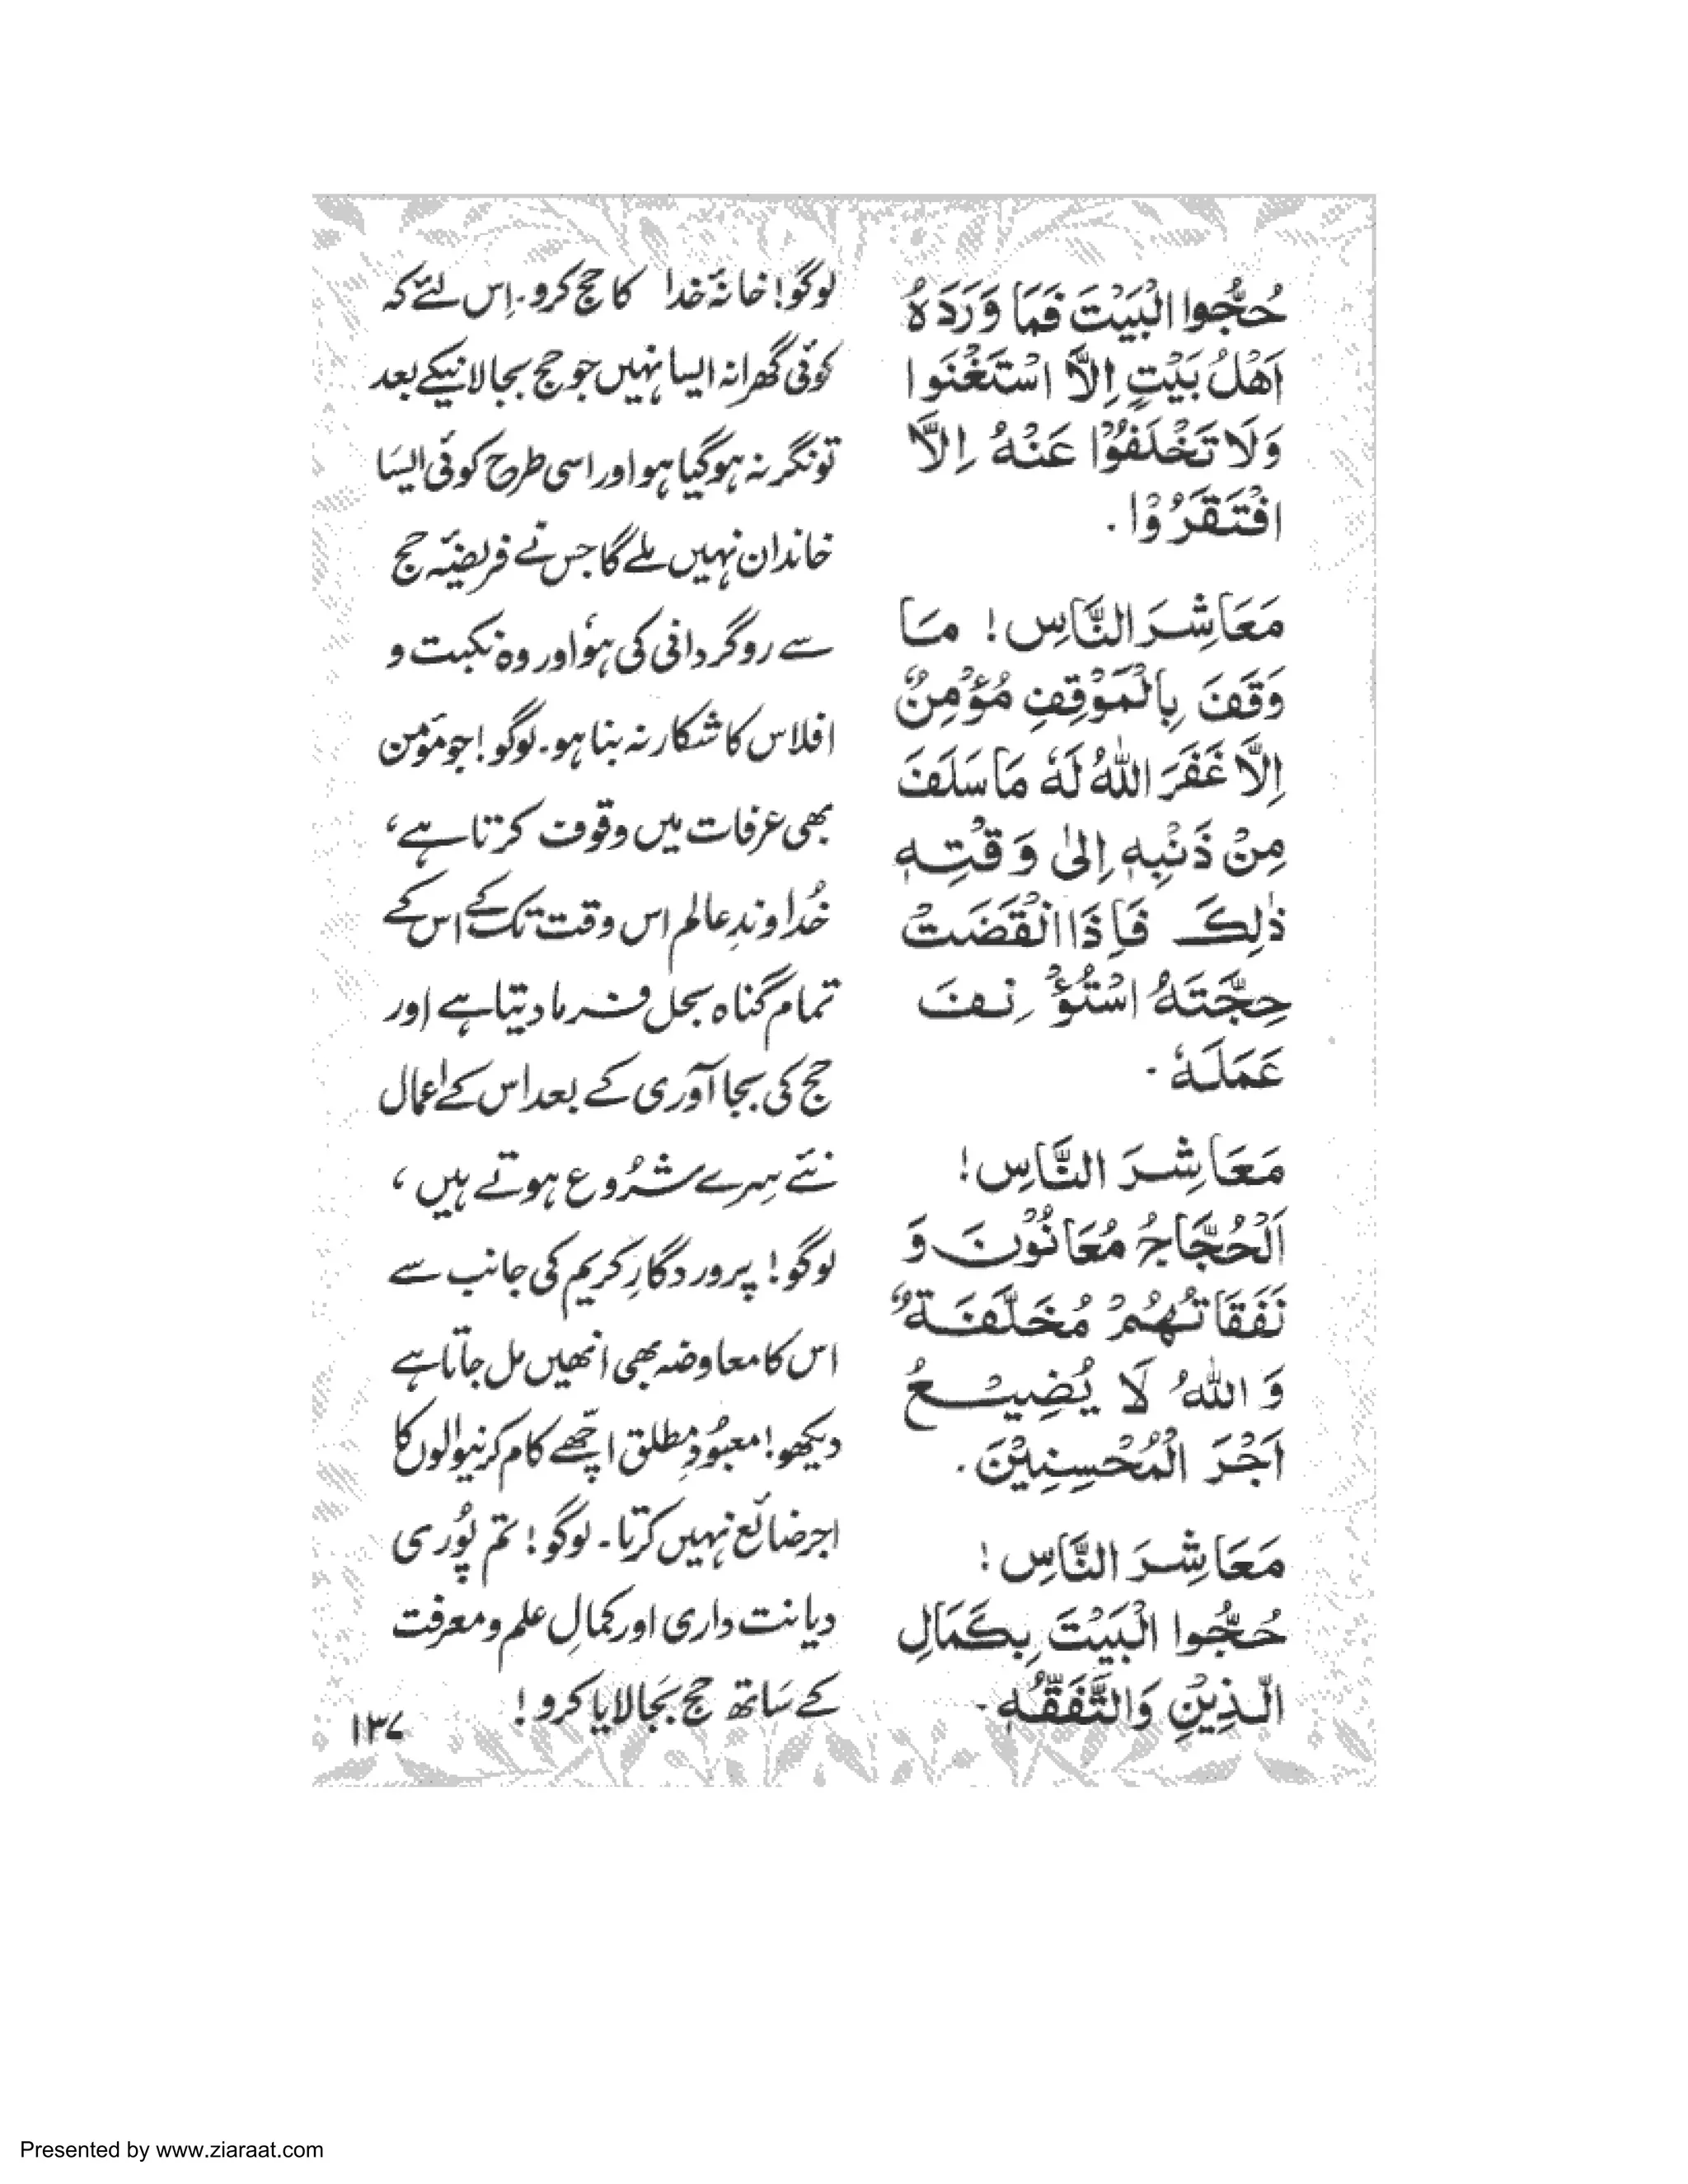 حُجُّوا الْبَيْتَ فَمَا وَرَدَهُ
اَهْلُ بَيْتٍ اِلَّا اسْتَغْنَوا
وَلَا تَخْلَفُوْا عَنْهُ اِلَّا
افْتَقَرُوْا ۔
مَعَاشِرَ النَّاسِ! مَا
وَقَفَ بِالْمَوْقِفِ مُؤْمِنٌ
اِلَّا غَفَرَ اللهُ لَهٗ مَا سَلَفَ
مِنْ ذَنْبِهٖ اِلىٰ وَقْتِهٖ
ذٰلِكَ فَاِذَا انْقَضَتْ
حِجَّتَهُ اسْتُؤْنِفَ
عَمَلَهٗ ۔
مَعَاشِرَ النَّاسِ!
اَلْحُجَّاجُ مُعَانُوْنَ وَ
نَفَقَاتُهُمْ مُخَلَّفَةٌ
وَ اللهُ لَا يُضِيْعُ
اَجْرَ الْمُحْسِنِيْنَ ۔
مَعَاشِرَ النَّاسِ!
حُجُّوا الْبَيْتَ بِكَمَالِ
الّذِيْنِ وَالتَّفَقُّهِ ۔
لوگو! خانۂ خدا کا حج کرو۔ اِس لئے کہ
کوئی گھرانہ ایسا نہیں جو حج بجا لانیکے بعد
تونگر نہ ہو گیا ہو اور اسی طرح کوئی ایسَا
خاندان نہیں ملے گا جس نے فریضۂ حج
سے روگردانی کی ہو اور وہ نکبت و
افلاس کا شکار نہ بنا ہو۔ لوگو! جو مومن
بھی عرفات میں وقوف کرتا ہے،
خُداوندِ عالم اس وقت تک کے اس کے
تمام گناہ بحل فرما دیتا ہے اور
حج کی بجا آوری کے بعد اس کے اعمال
نئے سِرے شرُوع ہوتے ہیں،
لوگو! پروردگارِ کریم کی جانب سے
اس کا معاوضہ بھی انھیں مل جاتا ہے
دیکھو! معبُودِ مطلق اچّھے کام کرنیوالوں کا
اجر ضائع نہیں کرتا۔ لوگو! تم پُوری
دیانت داری اور کمالِ علم و معرفت
کے سَاتھ حج بَجا لایا کرو!
۱۳۷
Presented by www.ziaraat.com